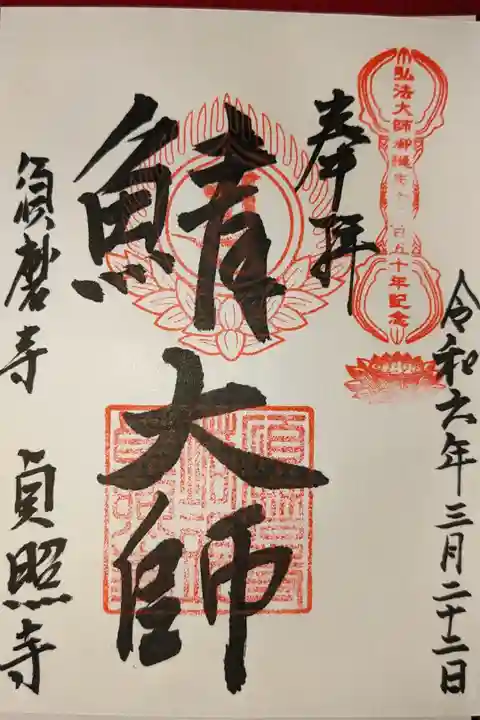 弘法大師御誕生千二百五十年記念
令和六年三月二十二日
奉拝
鯖大師
須磨寺 貞照寺